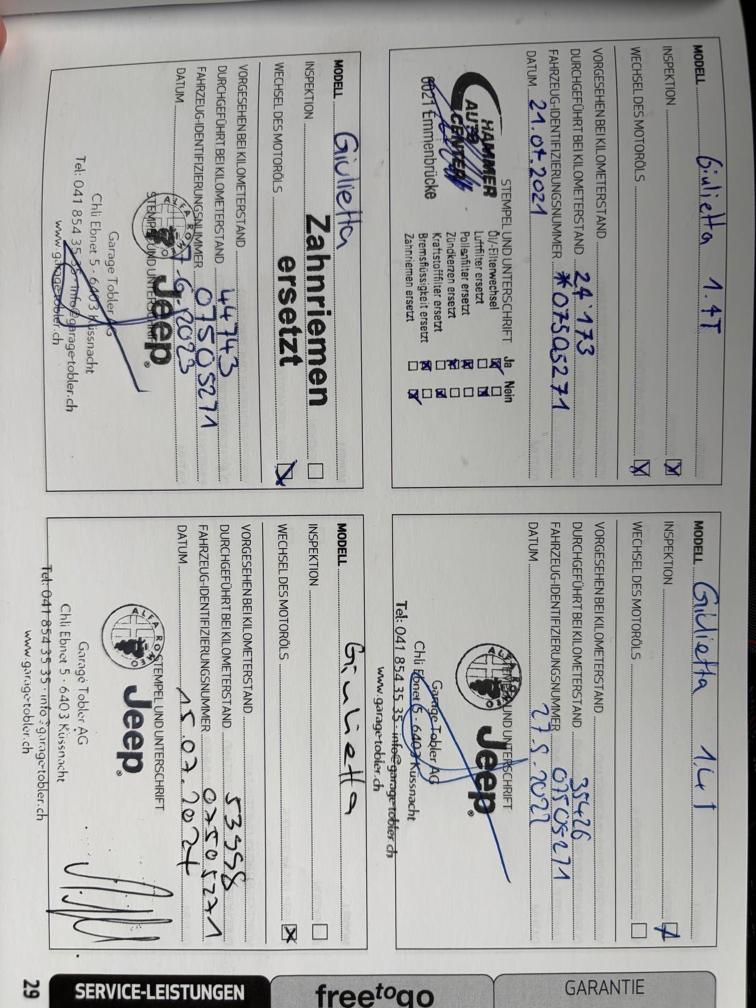 MODELL Giulietta 1.4T
INSPEKTION
WECHSEL DES MOTORÖLS
VORGESEHEN BEI KILOMETERSTAND
DURCHGEFÜHRT BEI KILOMETERSTAND 24'173
FAHRZEUG-IDENTIFIZIERUNGSNUMMER *07505271
DATUM
STEMPEL UND UNTERSCHRIFT
HAMMER
AUTO
CENTER
6021 Emmenbrücke
Ja Nein
Öl/-Filterwechsel
Luftfilter ersetzt
Pollenfilter ersetzt
Zündkerzen ersetzt
Kraftstofffilter ersetzt
Bremsflüssigkeit ersetzt
Zahnriemen ersetzt
MODELL Giulietta 1.4T
INSPEKTION
WECHSEL DES MOTORÖLS
VORGESEHEN BEI KILOMETERSTAND
DURCHGEFÜHRT BEI KILOMETERSTAND 35426
FAHRZEUG-IDENTIFIZIERUNGSNUMMER 07505271
DATUM 27.5.2022
STEMPEL UND UNTERSCHRIFT
ALFA ROMEO
Jeep®
Garage Tobler AG
Chli Ebnet 5 · 6403 Küssnacht
Tel: 041 854 35 35 · info@garage-tobler.ch
www.garage-tobler.ch
MODELL Giulietta
INSPEKTION
Zahnriemen
ersetzt
WECHSEL DES MOTORÖLS
VORGESEHEN BEI KILOMETERSTAND
DURCHGEFÜHRT BEI KILOMETERSTAND 44743
FAHRZEUG-IDENTIFIZIERUNGSNUMMER 07505271
DATUM 7-6-2023
STEMPEL UND UNTERSCHRIFT
ALFA ROMEO
Jeep®
Garage Tobler AG
Chli Ebnet 5 · 6403 Küssnacht
Tel: 041 854 35 35 · info@garage-tobler.ch
www.garage-tobler.ch
MODELL Giulietta
INSPEKTION
WECHSEL DES MOTORÖLS
VORGESEHEN BEI KILOMETERSTAND
DURCHGEFÜHRT BEI KILOMETERSTAND 53998
FAHRZEUG-IDENTIFIZIERUNGSNUMMER 07505271
DATUM 15.07.2024
STEMPEL UND UNTERSCHRIFT
ALFA ROMEO
Jeep®
Garage Tobler AG
Chli Ebnet 5 · 6403 Küssnacht
Tel: 041 854 35 35 · info@garage-tobler.ch
www.garage-tobler.ch
GARANTIE
freetogo
SERVICE-LEISTUNGEN
29